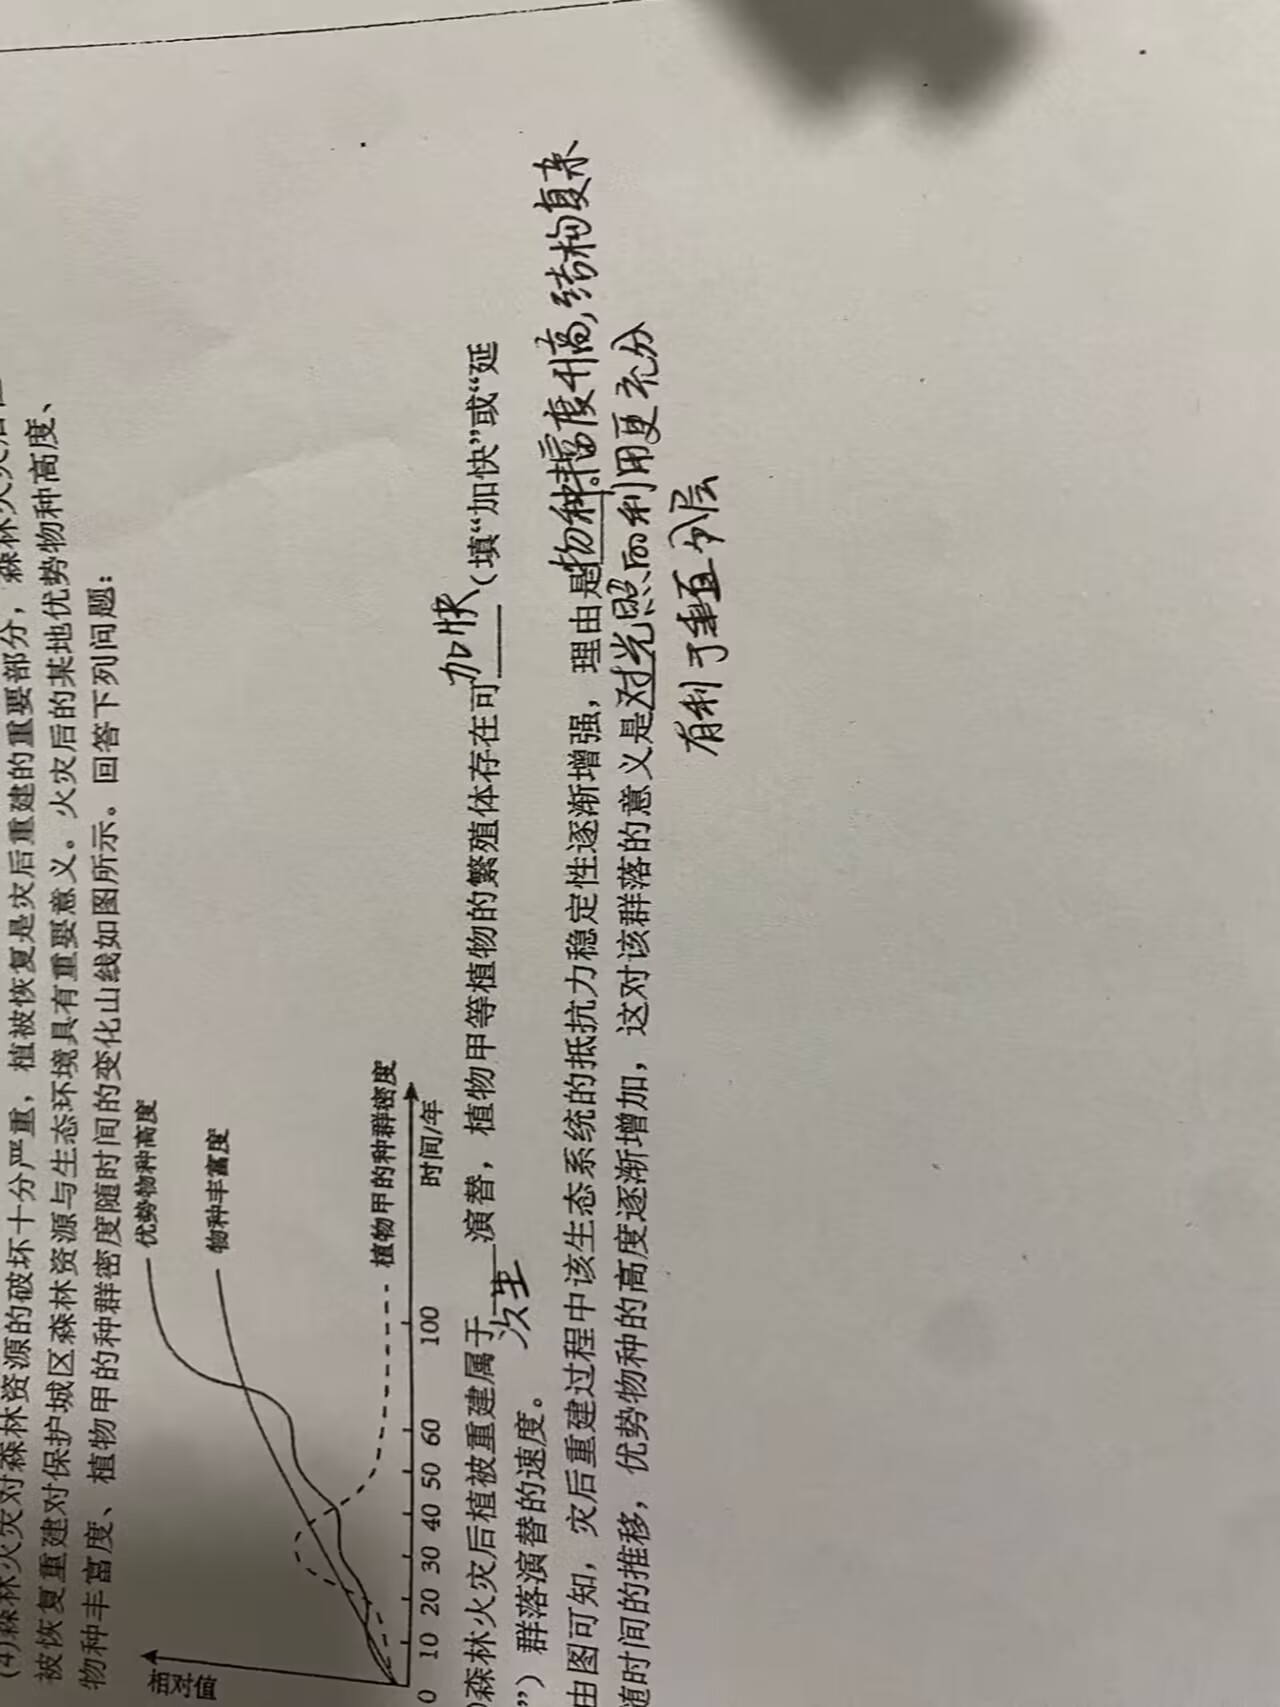 (4)森林火灾对森林资源的破坏十分严重，植被恢复是灾后重建的重要部分，森林火灾后植
被恢复重建对保护城区森林资源与生态环境具有重要意义。火灾后的某地优势物种高度、
物种丰富度、植物甲的种群密度随时间的变化山线如图所示。回答下列问题：
相对值
优势物种高度
物种丰富度
植物甲的种群密度
0 10 20 30 40 50 60 100 时间/年
)森林火灾后植被重建属于次生演替，植物甲等植物的繁殖体存在可加快(填“加快”或“延
”）群落演替的速度。
由图可知，灾后重建过程中该生态系统的抵抗力稳定性逐渐增强，理由是物种富度升高,结构复杂
随时间的推移，优势物种的高度逐渐增加，这对该群落的意义是对光照的利用更充分
有利于垂直分层